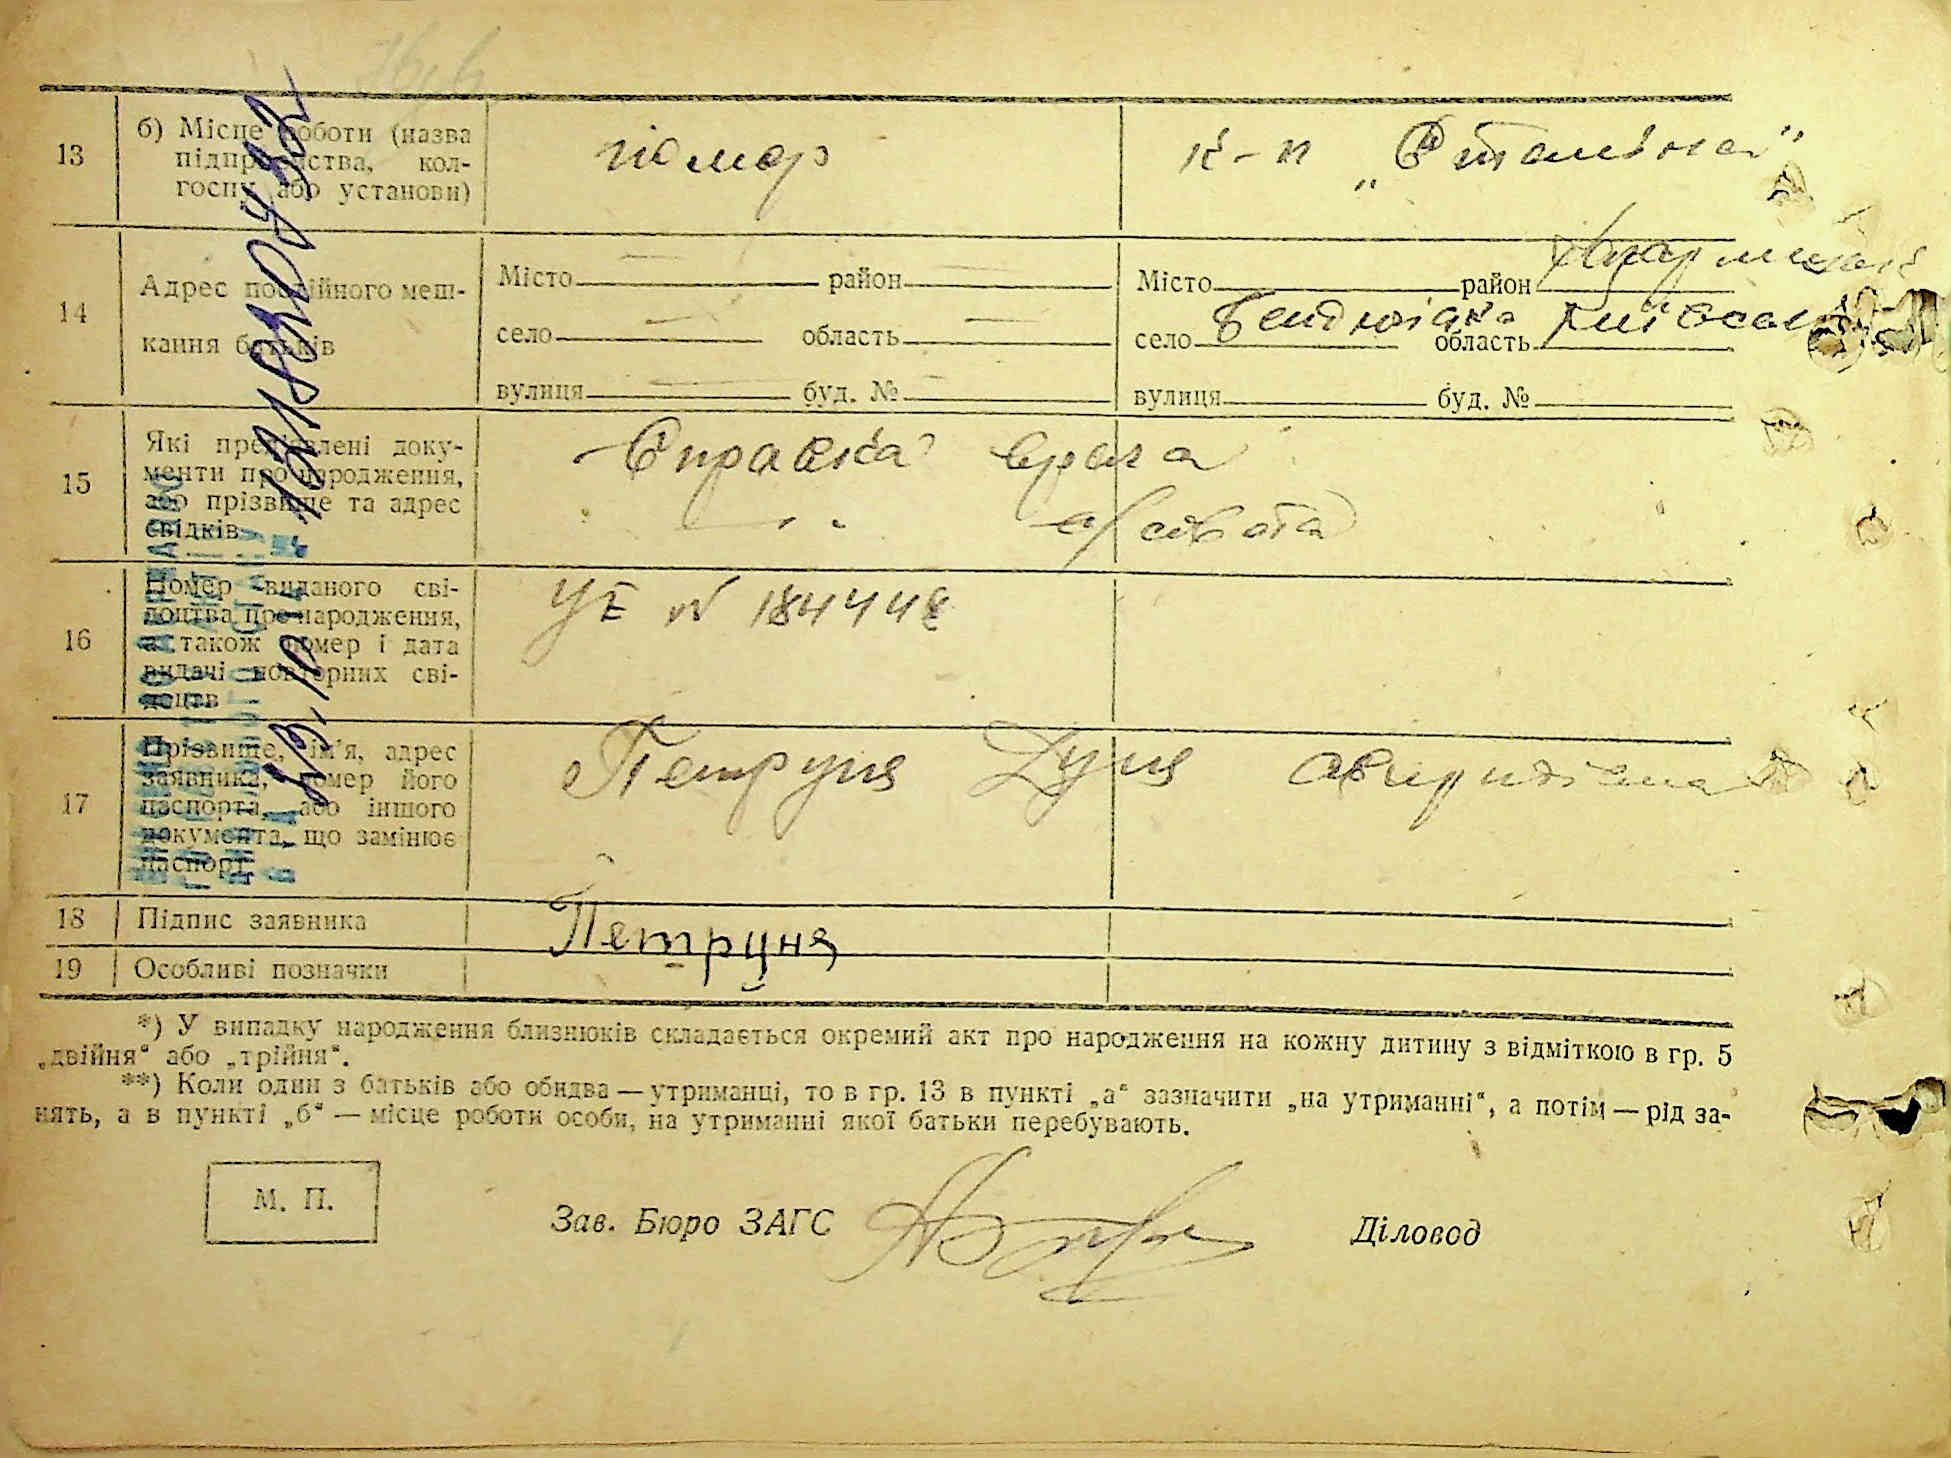 13
б) Місце роботи (назва
підприємства, кол-
госпу або установи)
помер
к-п „Сталіна"
14
Адрес постійного меш-
кання батьків
Місто район
село область
вулиця буд. №
Місто район
село Бендюгівка область Київська
вулиця буд. №
15
Які пред'явлені доку-
менти про народження,
або прізвище та адрес
свідків
Справка врача
16
Номер виданого сві-
доцтва про народження,
а також номер і дата
видачі повторних сві-
доцтв
УЕ № 184448
17
Прізвище, ім'я, адрес
заявника, номер його
паспорта, або іншого
документа, що замінює
паспорт
Петруня
18
Підпис заявника
Петруня
19
Особливі позначки
*) У випадку народження близнюків складається окремий акт про народження на кожну дитину з відміткою в гр. 5
„двійня" або „трійня".
**) Коли один з батьків або обидва — утриманці, то в гр. 13 в пункті „а" зазначити „на утриманні", а потім — рід за-
нять, а в пункті „б" — місце роботи особи, на утриманні якої батьки перебувають.
М. П.
Зав. Бюро ЗАГС
Діловод